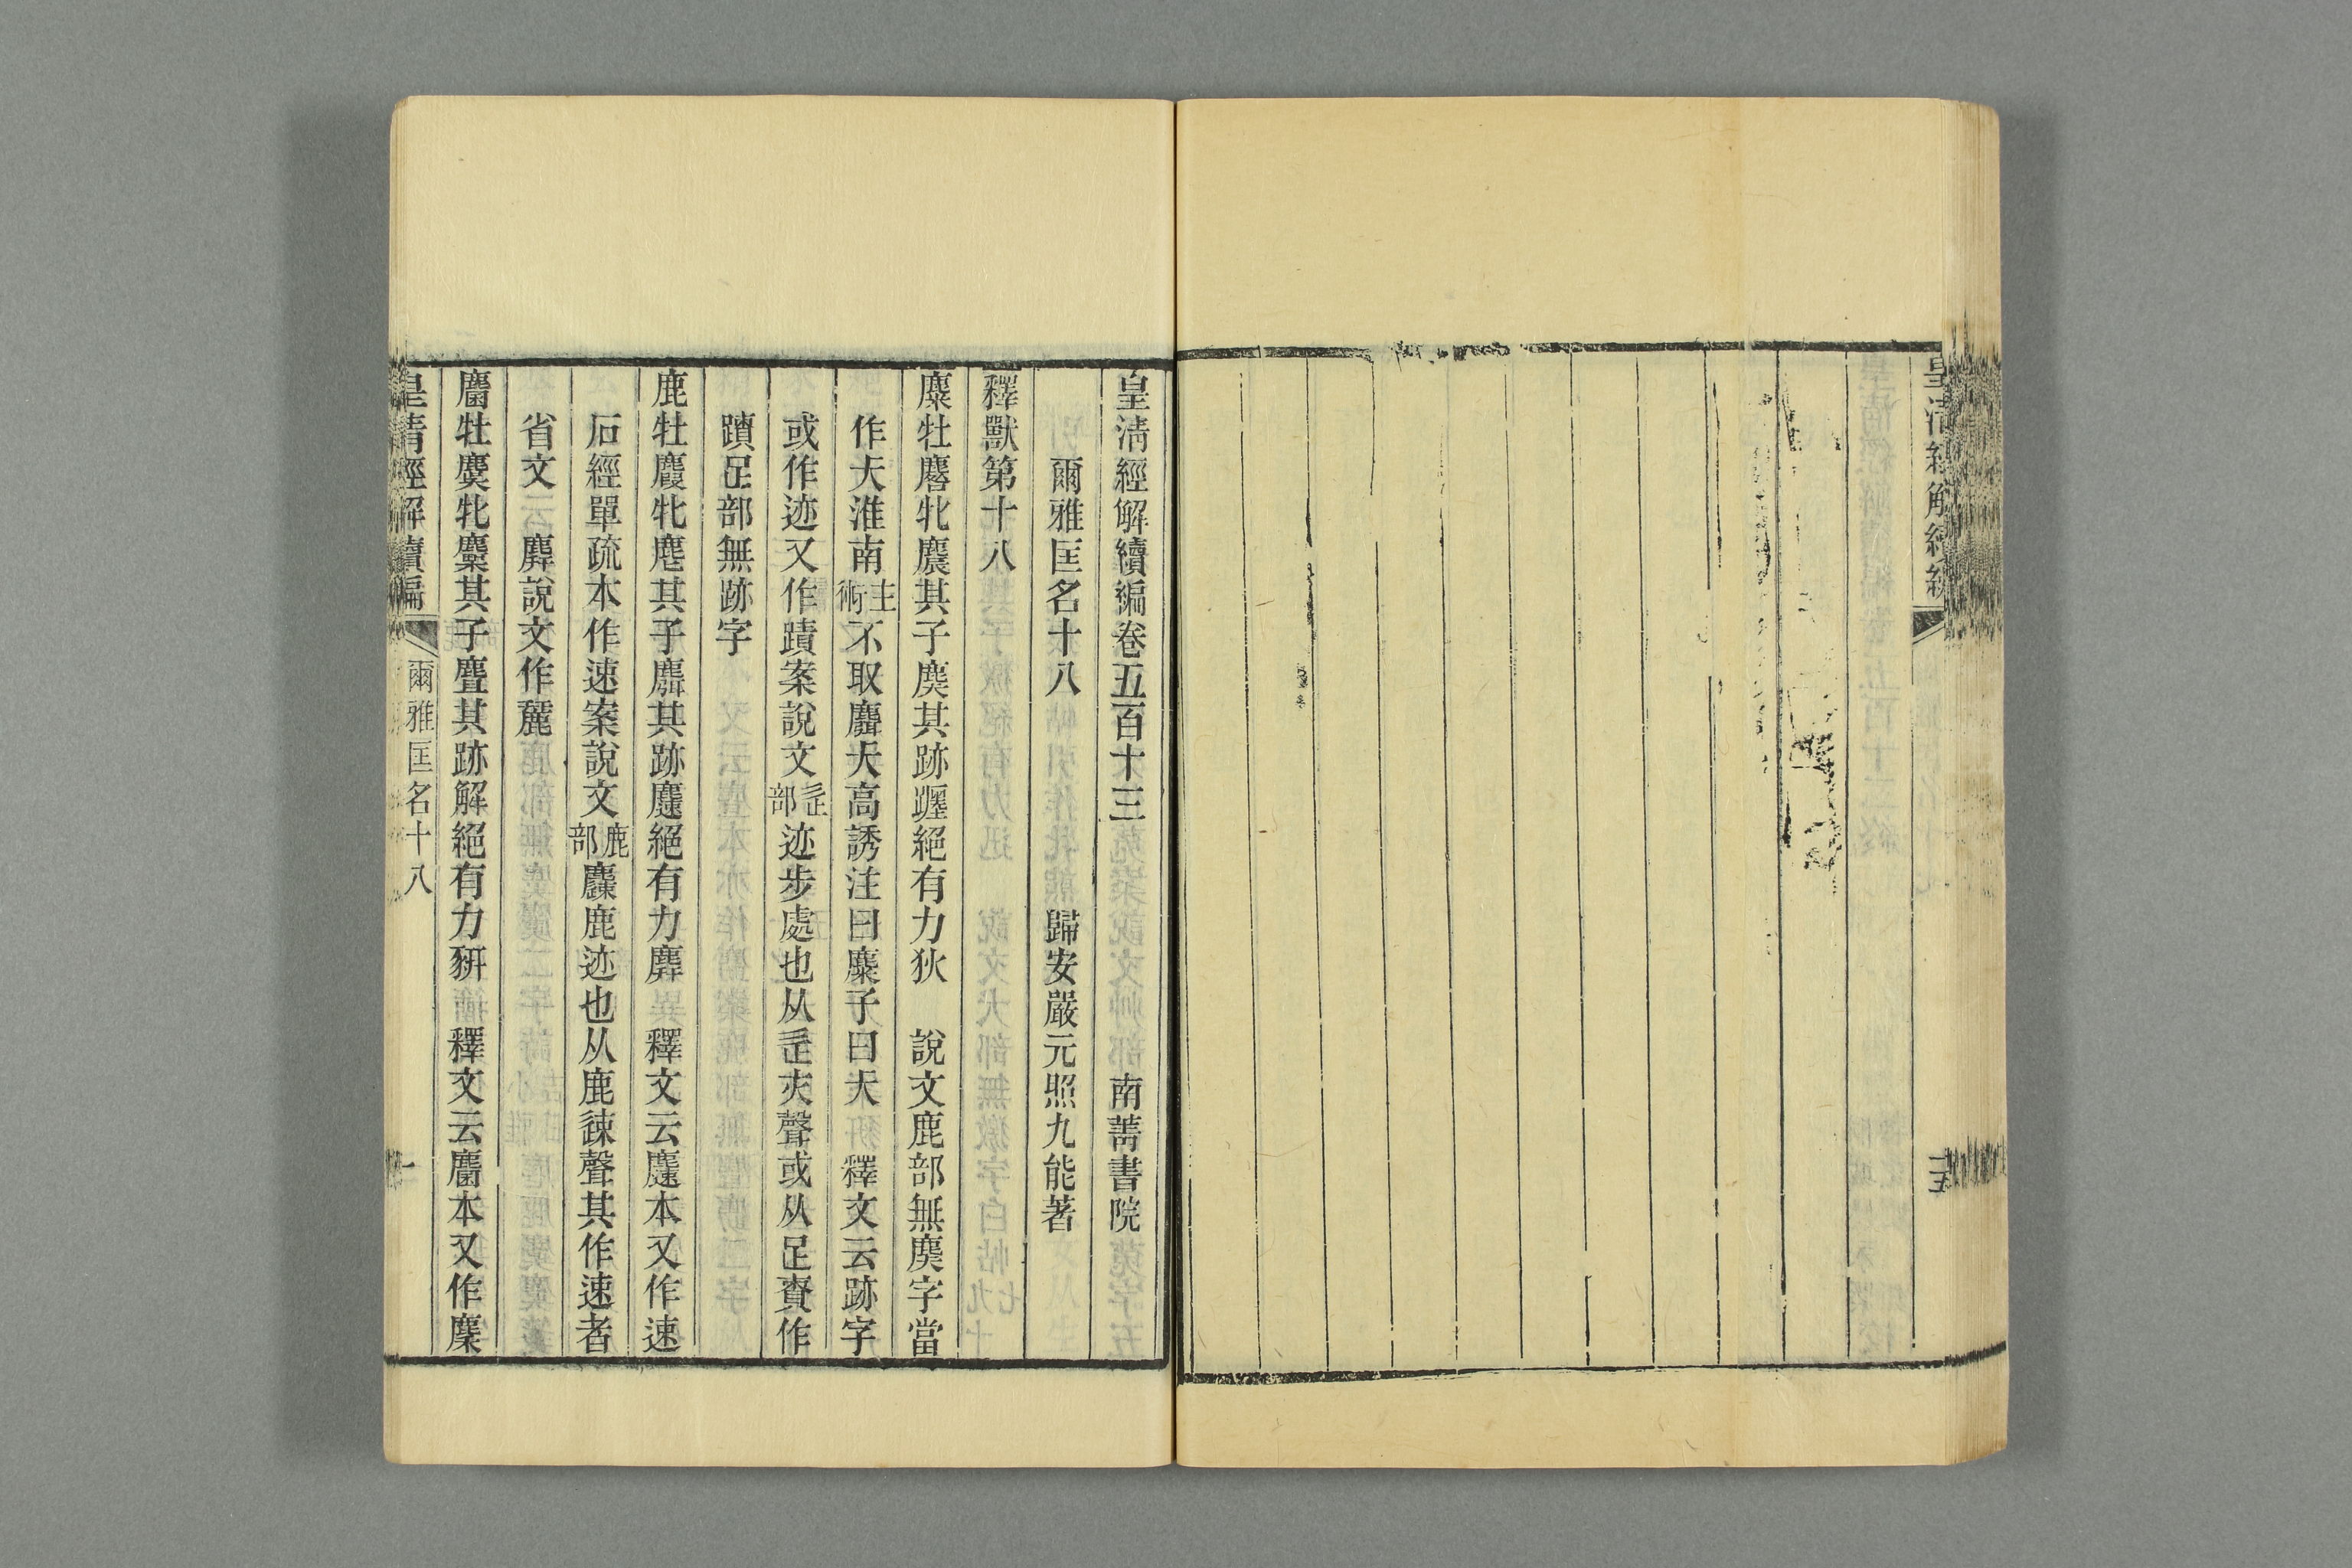 皇清經解續編
十五
皇清經解續編卷五百十三 南菁書院
爾雅匡名十八 歸安嚴元照九能著
釋獸第十八
麋牡麔牝麎其子䴠其跡躔絕有力狄 說文鹿部無䴠字當
作夭淮南主術不取麛夭高誘注曰麋子曰夭 釋文云跡字
或作迹又作蹟案說文辵部迹步處也从辵亦聲或从足責作
蹟足部無跡字
鹿牡麚牝麀其子麛其跡速絕有力麉 釋文云麈本又作速
石經單疏本作速案說文鹿部䴎鹿迹也从鹿速聲其作速者
省文 麉說文作麗
麕牡麌牝麜其子麆其跡解絕有力豜 釋文云麕本又作麇
皇清經解續編 爾雅匡名十八 一